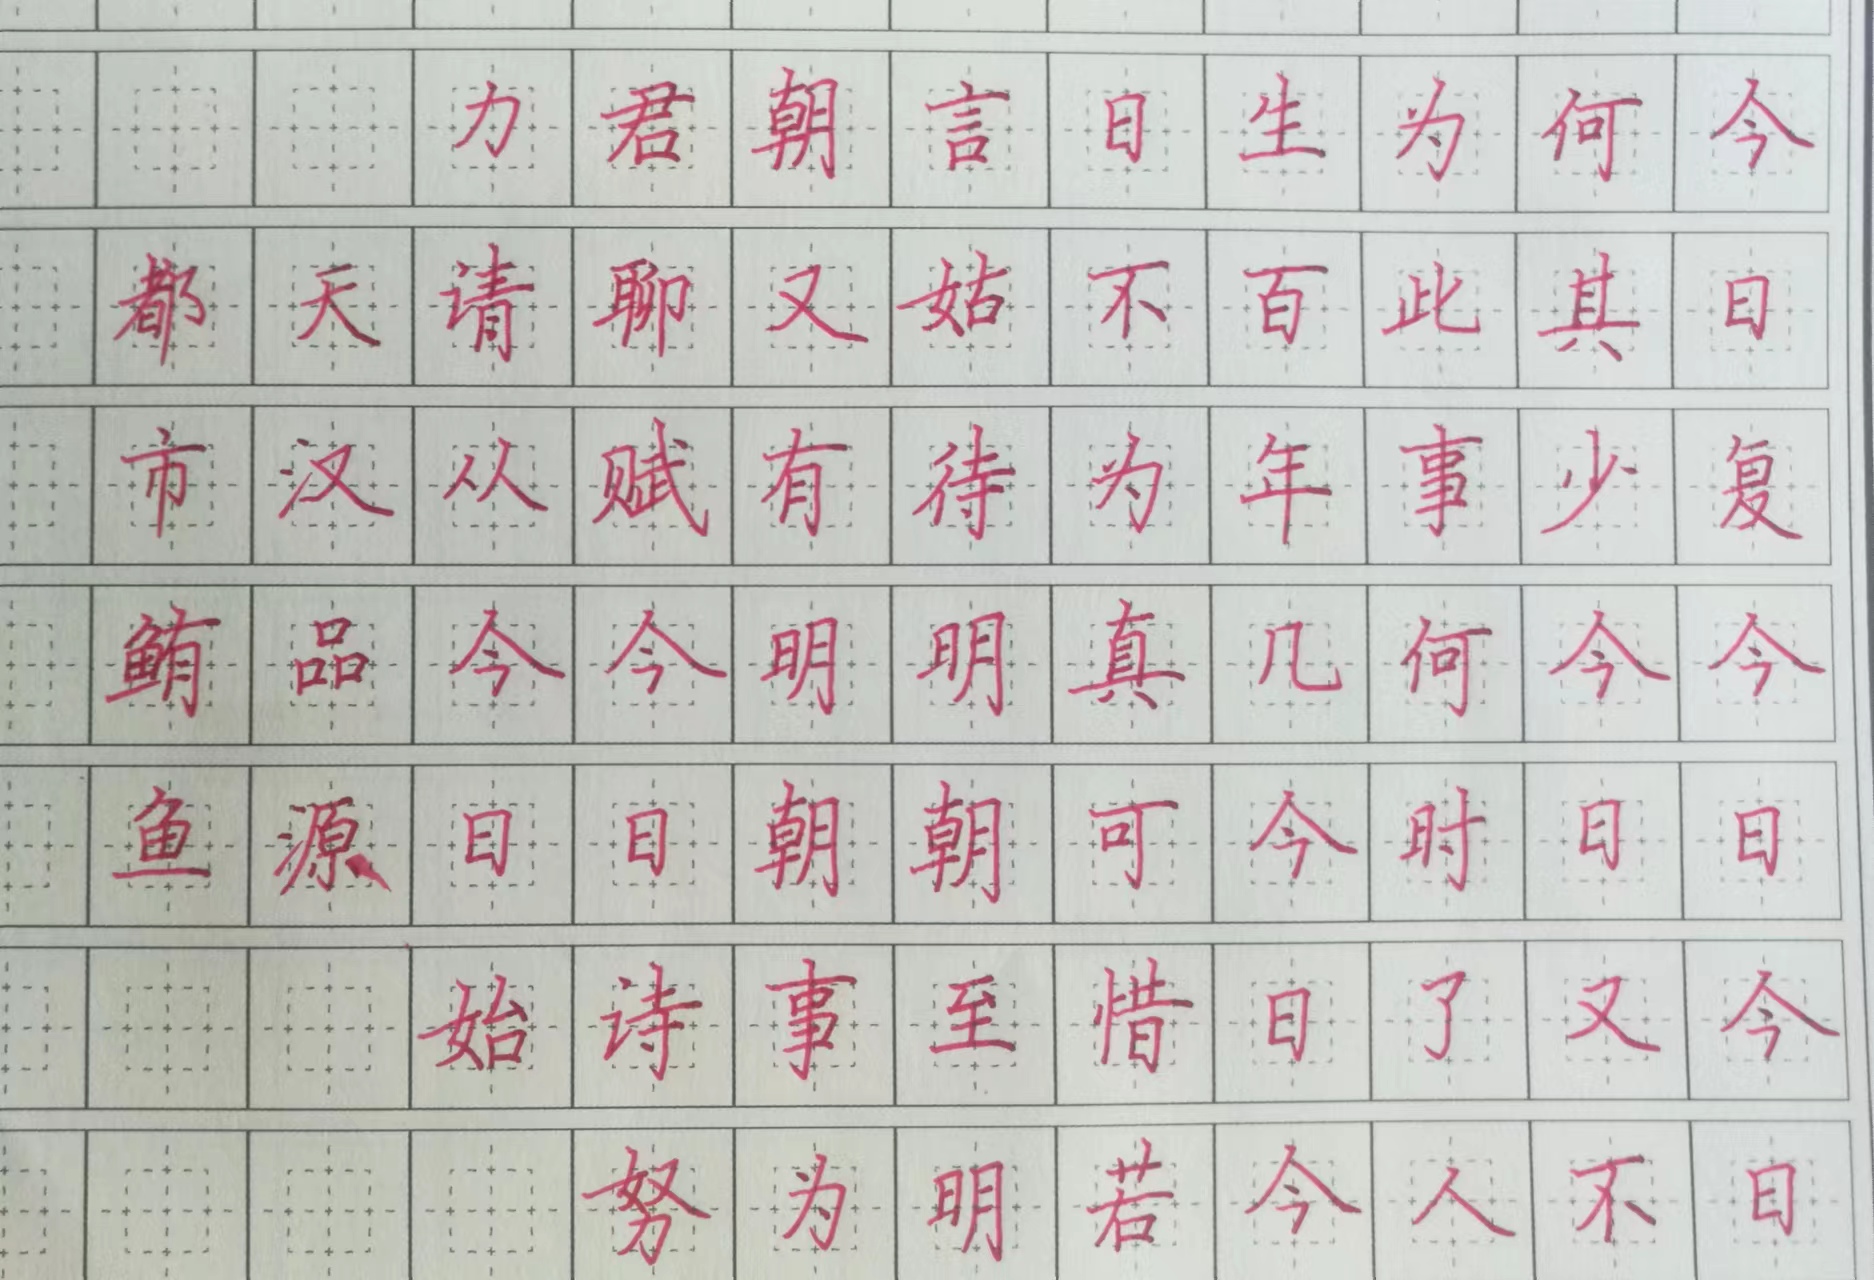 今日复今日今日
何其少今日又不
为此事何时了人
生百年几今日今
日不为真可惜若
言姑待明朝至明
朝又有明朝事为
君聊赋今日诗努
力请从今日始
天汉品源
都市鲔鱼